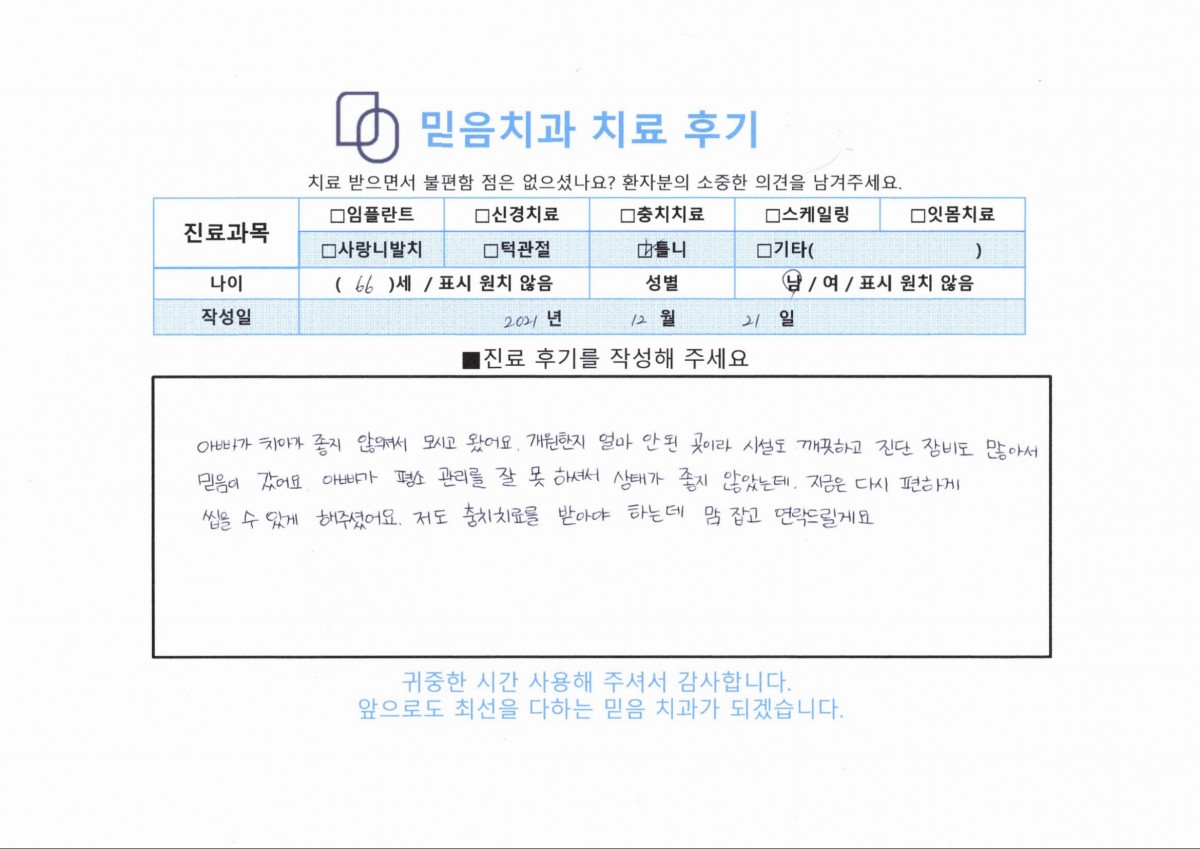 믿음치과 치료 후기
치료 받으면서 불편함 점은 없으셨나요? 환자분의 소중한 의견을 남겨주세요.
진료과목 □임플란트 □신경치료 □충치치료 □스케일링 □잇몸치료
□사랑니발치 □턱관절 □틀니 □기타( )
나이 ( 66 )세 / 표시 원치 않음 성별 남 / 여 / 표시 원치 않음
작성일 2021 년 12 월 21 일
■진료 후기를 작성해 주세요
아빠가 치아가 좋지 않으셔서 모시고 왔어요. 개원한지 얼마 안 된 곳이라 시설도 깨끗하고 진단 장비도 많아서
믿음이 갔어요 아빠가 평소 관리를 잘 못 하셔서 상태가 좋지 않았는데. 지금은 다시 편하게
씹을 수 있게 해주셨어요. 저도 충치치료를 받아야 하는데 맘 잡고 연락드릴게요
귀중한 시간 사용해 주셔서 감사합니다.
앞으로도 최선을 다하는 믿음 치과가 되겠습니다.